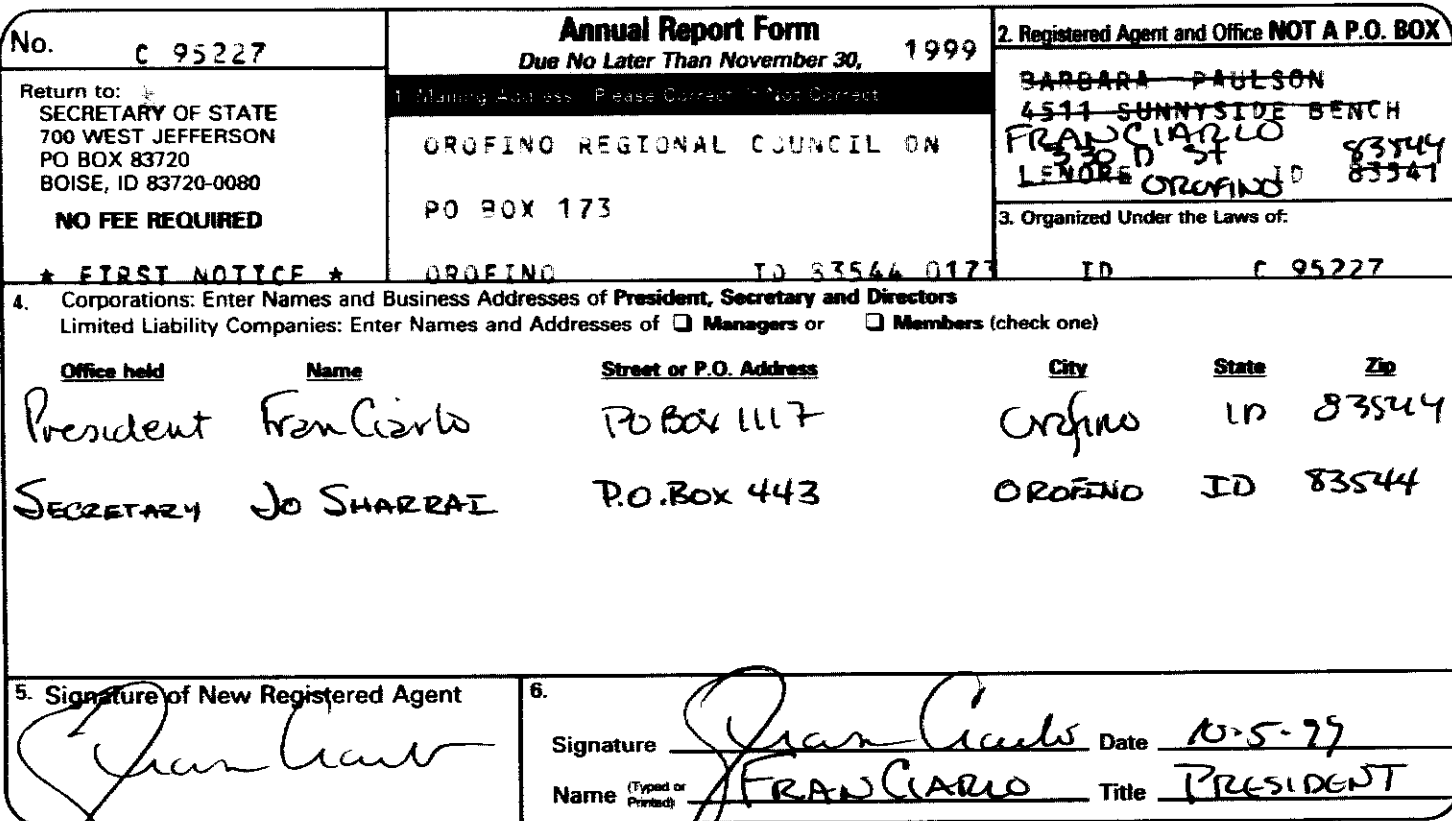 No. C 95227
Return to:
SECRETARY OF STATE
700 WEST JEFFERSON
PO BOX 83720
BOISE, ID 83720-0080
NO FEE REQUIRED
* FIRST NOTICE *
Annual Report Form
Due No Later Than November 30, 1999
1. Mailing Address - Please Correct If Not Correct
OROFINO REGIONAL COUNCIL ON
PO BOX 173
OROFINO ID 83544 0173
2. Registered Agent and Office NOT A P.O. BOX
BARBARA PAULSON
4511 SUNNYSIDE BENCH
FRAN CIARLO
330 D St 83544
LENORE OROFINO ID 83541
3. Organized Under the Laws of:
ID C 95227
4. Corporations: Enter Names and Business Addresses of President, Secretary and Directors
Limited Liability Companies: Enter Names and Addresses of ❏ Managers or ❏ Members (check one)
Office held Name Street or P.O. Address City State Zip
President Fran Ciarlo PO Box 1117 Orofino ID 83544
SECRETARY JO SHARRAI P.O. BOX 443 OROFINO ID 83544
5. Signature of New Registered Agent
Fran Ciarlo
6.
Signature Fran Ciarlo Date 10-5-99
Name (Typed or Printed) FRAN CIARLO Title PRESIDENT